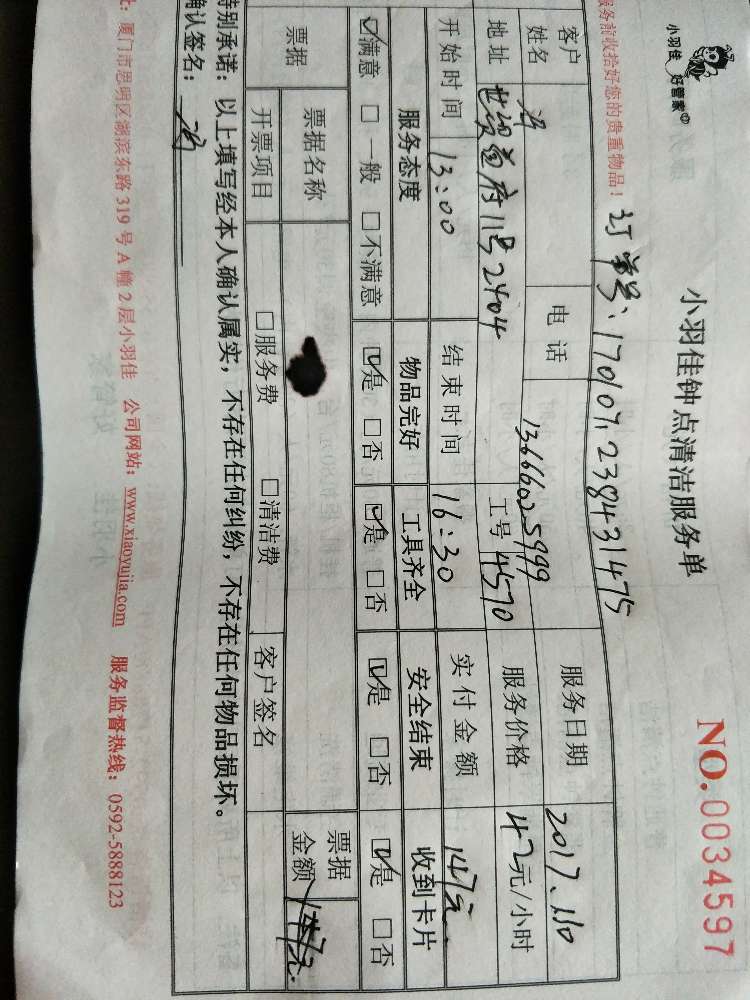 小羽佳 好管家
小羽佳钟点清洁服务单
NO.0034597
服务前收拾好您的贵重物品！ 订单号：170107.238431475
客户姓名 冯 电话 13666025999 服务日期 2017.1.10
地址 世贸首府11号2404 工号 4570 服务价格 42元/小时
开始时间 13:00 结束时间 16:30 实付金额 147元
服务态度 物品完好 工具齐全 安全结束 收到卡片
☑满意 □一般 □不满意 ☑是 □否 ☑是 □否 ☑是 □否 ☑是 □否
票据 票据名称 票据金额
开票项目 □服务费 □清洁费 客户签名
特别承诺：以上填写经本人确认属实，不存在任何纠纷，不存在任何物品损坏。
确认签名： 冯
厦门市思明区湖滨东路319号A幢2层小羽佳 公司网站：www.xiaoyujia.com 服务监督热线：0592-5888123